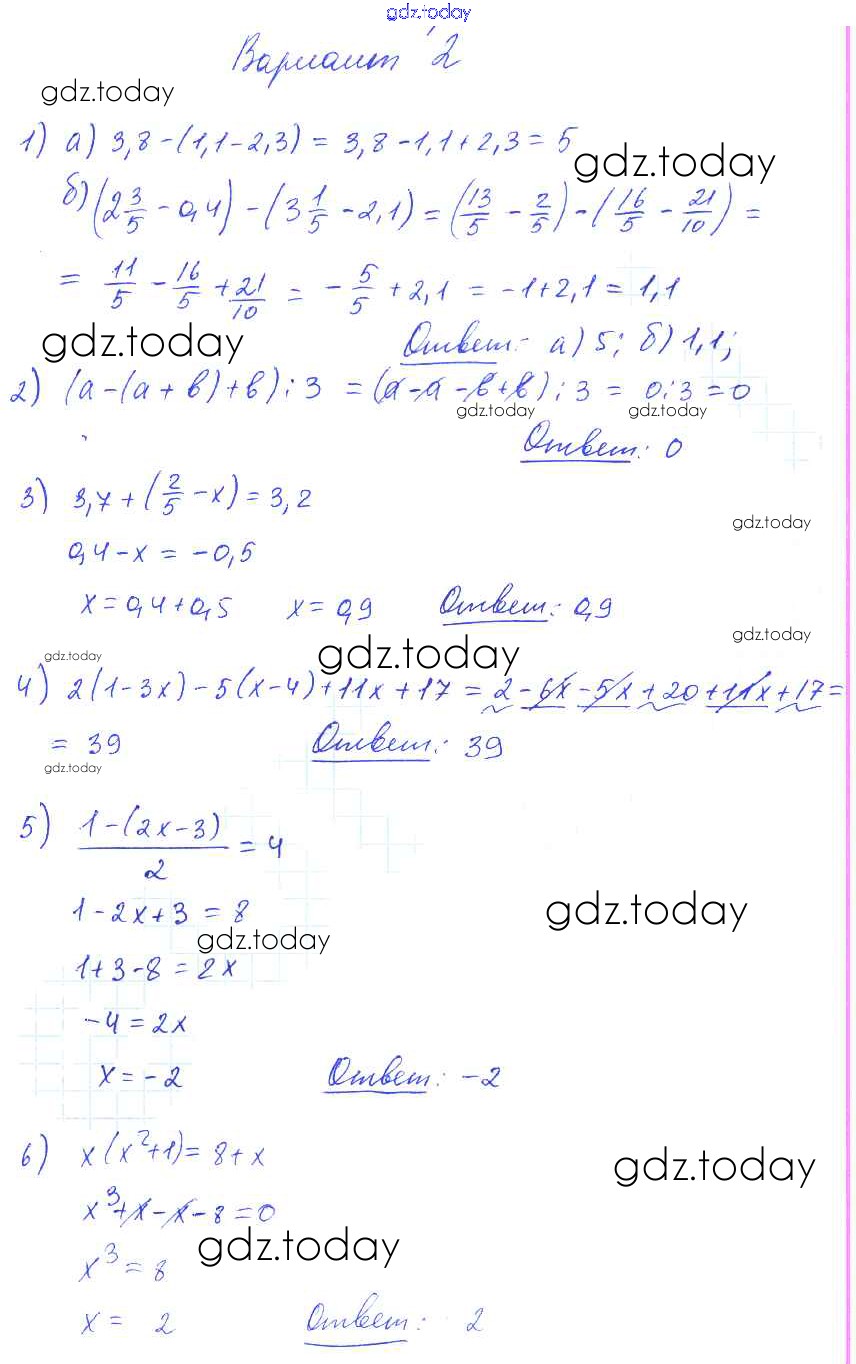 gdz.today
Вариант 2
gdz.today
1) а) 3,8-(1,1-2,3) = 3,8-1,1+2,3 = 5
gdz.today
б) (2 3/5 - 0,4) - (3 1/5 - 2,1) = (13/5 - 2/5) - (16/5 - 21/10) =
= 11/5 - 16/5 + 21/10 = - 5/5 + 2,1 = -1+2,1 = 1,1
gdz.today Ответ: а) 5; б) 1,1;
2) (а-(а+в)+в):3 = (а-а-в+в):3 = 0:3=0
gdz.today gdz.today
Ответ: 0
3) 3,7+(2/5 -x)=3,2
gdz.today
0,4-x = -0,5
x=0,4+0,5 x=0,9 Ответ: 0,9
gdz.today
gdz.today gdz.today
4) 2(1-3x)-5(x-4)+11x+17 = 2-6x-5x+20+11x+17=
= 39 Ответ: 39
gdz.today
5) 1-(2x-3)/2 = 4
1-2x+3 = 8
gdz.today
gdz.today
1+3-8 = 2x
-4=2x
x=-2 Ответ: -2
6) x(x²+1)= 8+x
gdz.today
x³+x-x-8=0
gdz.today
x³=8
x= 2 Ответ: 2